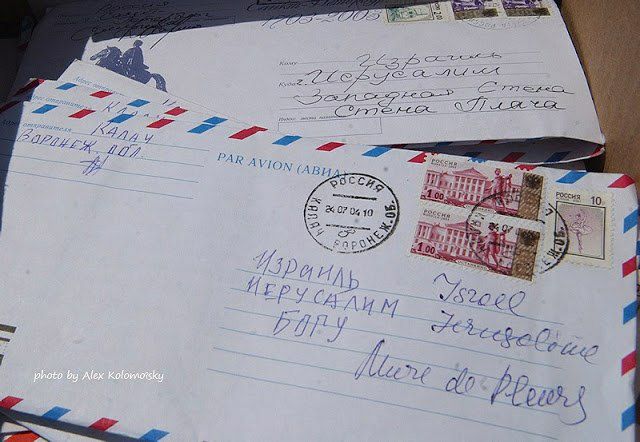 1703-2003
Кому Израиль
Куда г. Иерусалим
Западная Стена
Стена Плача
Индекс места назначения
Адрес отправителя
Калач
Воронеж. обл.
PAR AVION (АВИА)
РОССИЯ
24 07 04 10
КАЛАЧ ВОРОНЕЖ. ОБ.
РОССИЯ
1.00
1.00
РОССИЯ 10
ИЗРАИЛЬ Israel
ИЕРУСАЛИМ Jerusaleme
БОГУ Mure de Pleurs
photo by Alex Kolomoisky